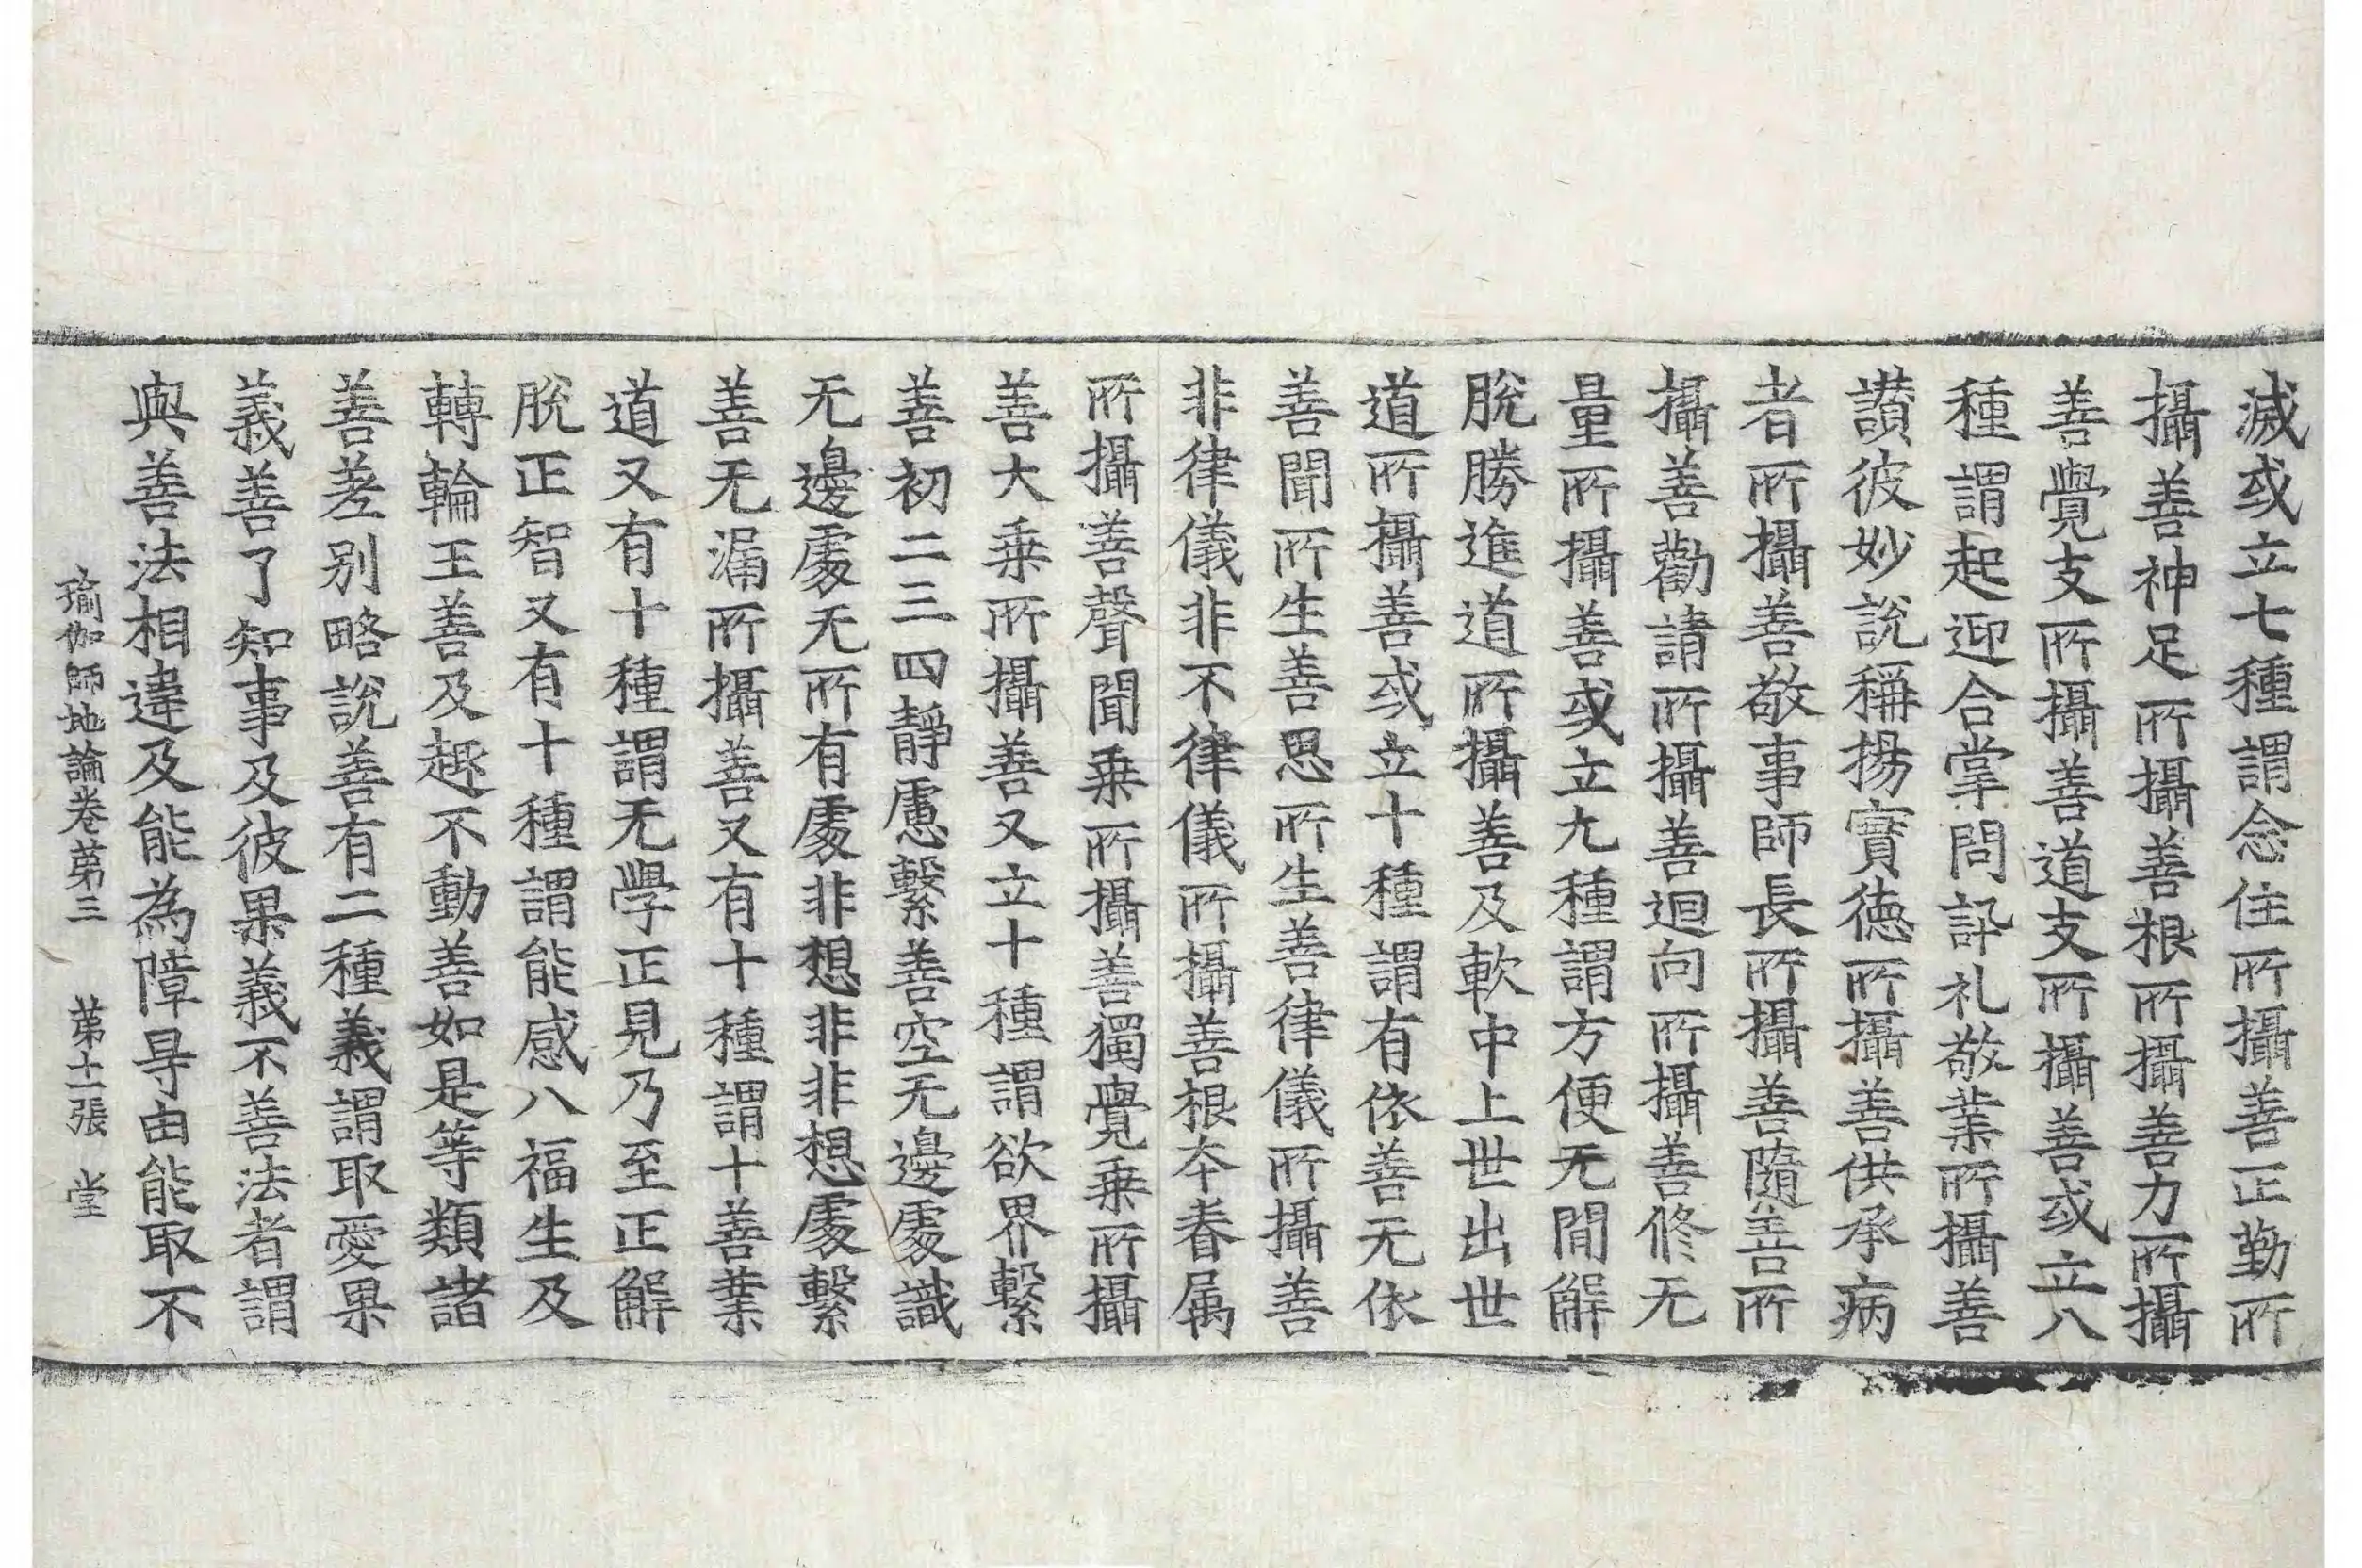 滅或立七種謂念住所攝善正勤所
攝善神足所攝善根所攝善力所攝
善覺支所攝善道支所攝善或立八
種謂起迎合掌問訊礼敬業所攝善
讃彼妙說稱揚實德所攝善供承病
者所攝善敬事師長所攝善隨喜所
攝善勸請所攝善迴向所攝善修无
量所攝善或立九種謂方便无閒解
脫勝進道所攝善及軟中上世出世
道所攝善或立十種謂有依善无依
善聞所生善思所生善律儀所攝善
非律儀非不律儀所攝善根本眷属
所攝善聲聞乗所攝善獨覺乗所攝
善大乗所攝善又立十種謂欲界繫
善初二三四靜慮繫善空无邊處識
无邊處无所有處非想非非想處繫
善无漏所攝善又有十種謂十善業
道又有十種謂无學正見乃至正解
脫正智又有十種謂能感八福生及
轉輪王善及趣不動善如是等類諸
善差別略說善有二種義謂取愛果
義善了知事及彼果義不善法者謂
與善法相違及能為障㝵由能取不
瑜伽師地論卷第三 第十二張 堂